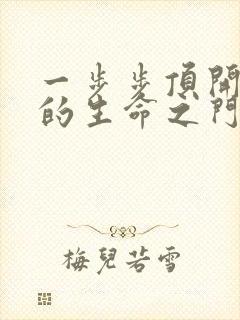 一步步頂開
的生命之門
梅兒若雪